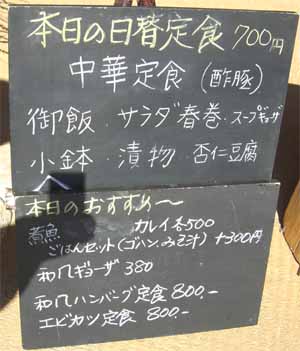 本日の日替定食 700円
中華定食（酢豚）
御飯・サラダ 春巻・スープギョーザ
小鉢・漬物・杏仁豆腐
本日のおすすめ〜
煮魚 カレイ各500
ごはんセット(ゴハン、みそ汁) +300円
和風ギョーザ 380
和風ハンバーグ定食 800.-
エビカツ定食 800.-